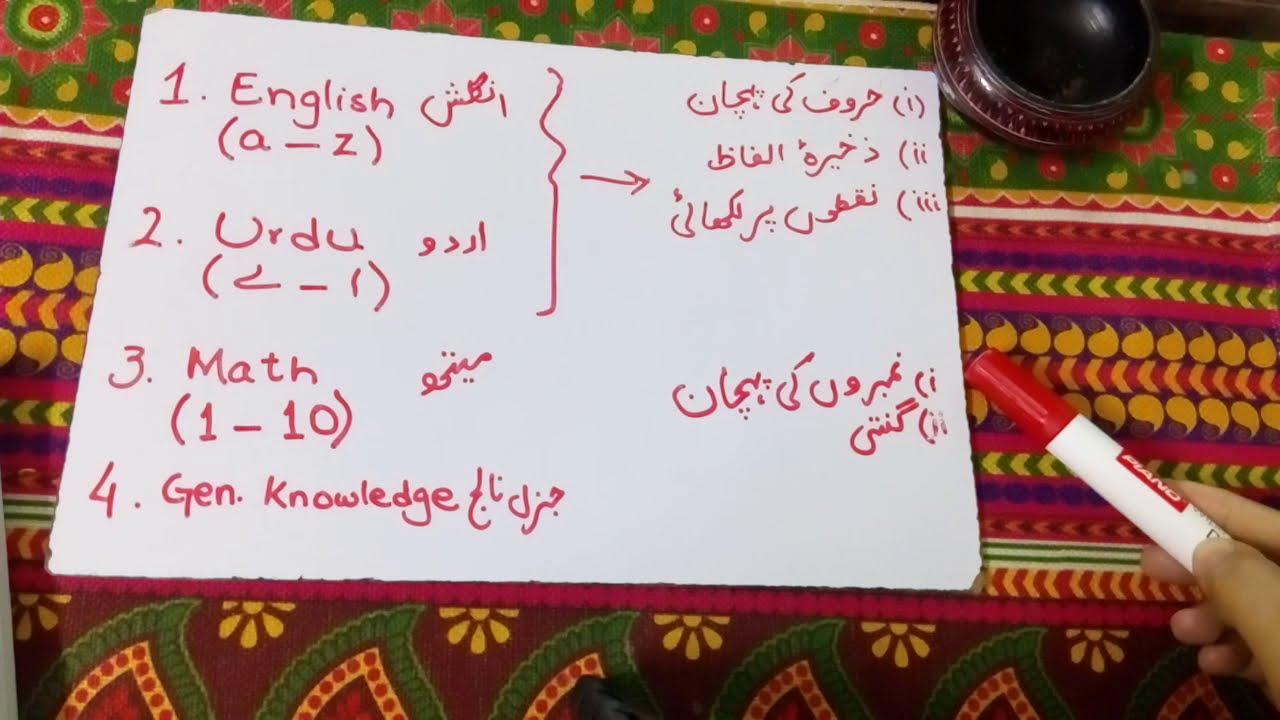 1. English انگلش
(a – z)
2. Urdu اردو
(ا – ے)
3. Math میتھ
(1 – 10)
4. Gen. Knowledge جنرل نالج
(i) حروف کی پہچان
ii) ذخیرۂ الفاظ
iii) نقطوں پر لکھائی
i) نمبروں کی پہچان
ii) گنتی
PIANO